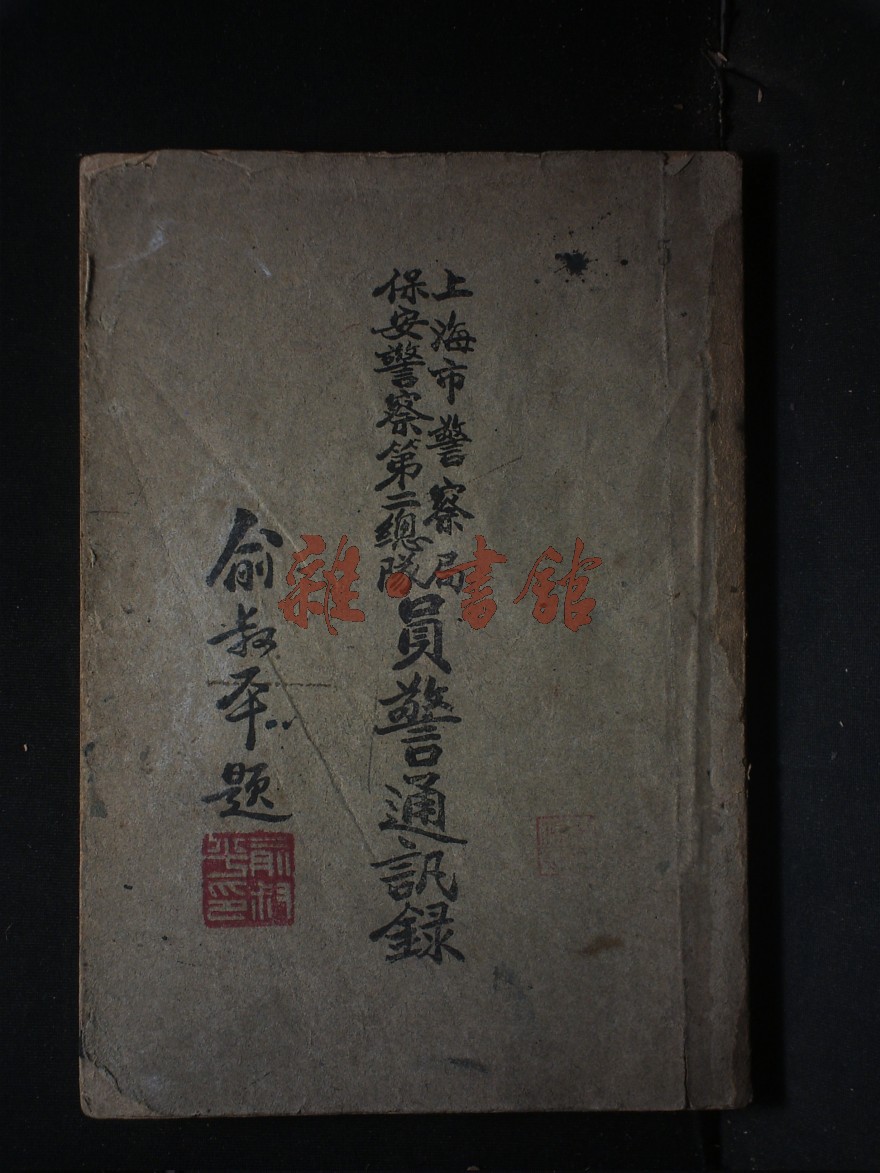 上海市警察局
保安警察第二總隊
員警通訊録
俞叔平題
俞叔平印
雜·書館